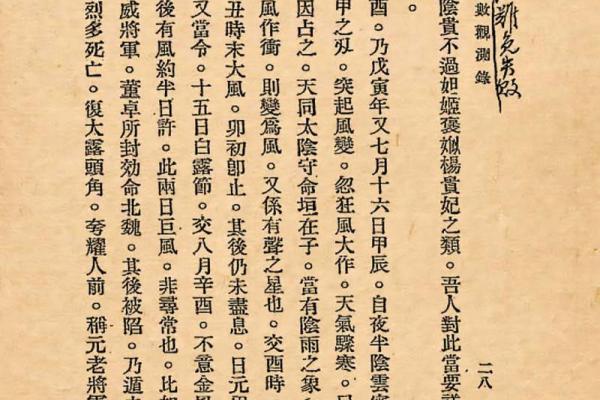 數觀測錄
二八
陰貴不過妲姬褒姒楊貴妃之類。吾人對此當要謹
。
酉。乃戊寅年又七月十六日甲辰。自夜半陰雲密
甲之刄。突起風變。忽狂風大作。天氣驟寒。日
因占之。天同太陰守命垣在子。當有陰雨之象。
風作衝。則變爲風。又係有聲之星也。交酉時
丑時末大風。卯初卽止。其後仍未盡息。日元甲
又當令。十五日白露節。交八月辛酉。不意金
後有風約半日許。此兩日巨風。非尋常也。比
威將軍。董卓所封効命北魏。其後被陷。乃遁
烈多死亡。復大露頭角。夸耀人前。稱元老將軍